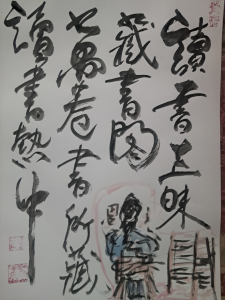 讀書三昧
藏書閣
七萬卷書所藏
讀書熱中